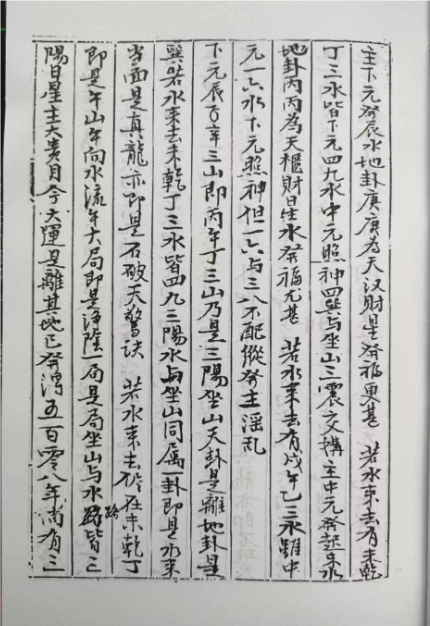 主下元發辰水地卦庚庚為天汉財星發福更甚　若水来去有未乾
丁三水皆下元四九水中元照神四與与坐山三震交媾主中元發
地卦丙丙為天樞財星水發福尤甚　若水来去有戌午乙三水雖中
元一六水下元照神但一六与三八不配縱發主淫乱
下元辰亥辛三山即丙午丁三山乃是三陽坐山天卦是離地卦是
巽若水来去未乾丁三水皆四九三陽水与坐山同属一卦即是水来
当面是真龍亦即是石破天驚诀　若水来去在未乾丁
即是午山午向水流午大局即是净陰一局是局坐山与水路皆三
陽日星主大贵目今大運是離其地已發洩五百零八年尚有三